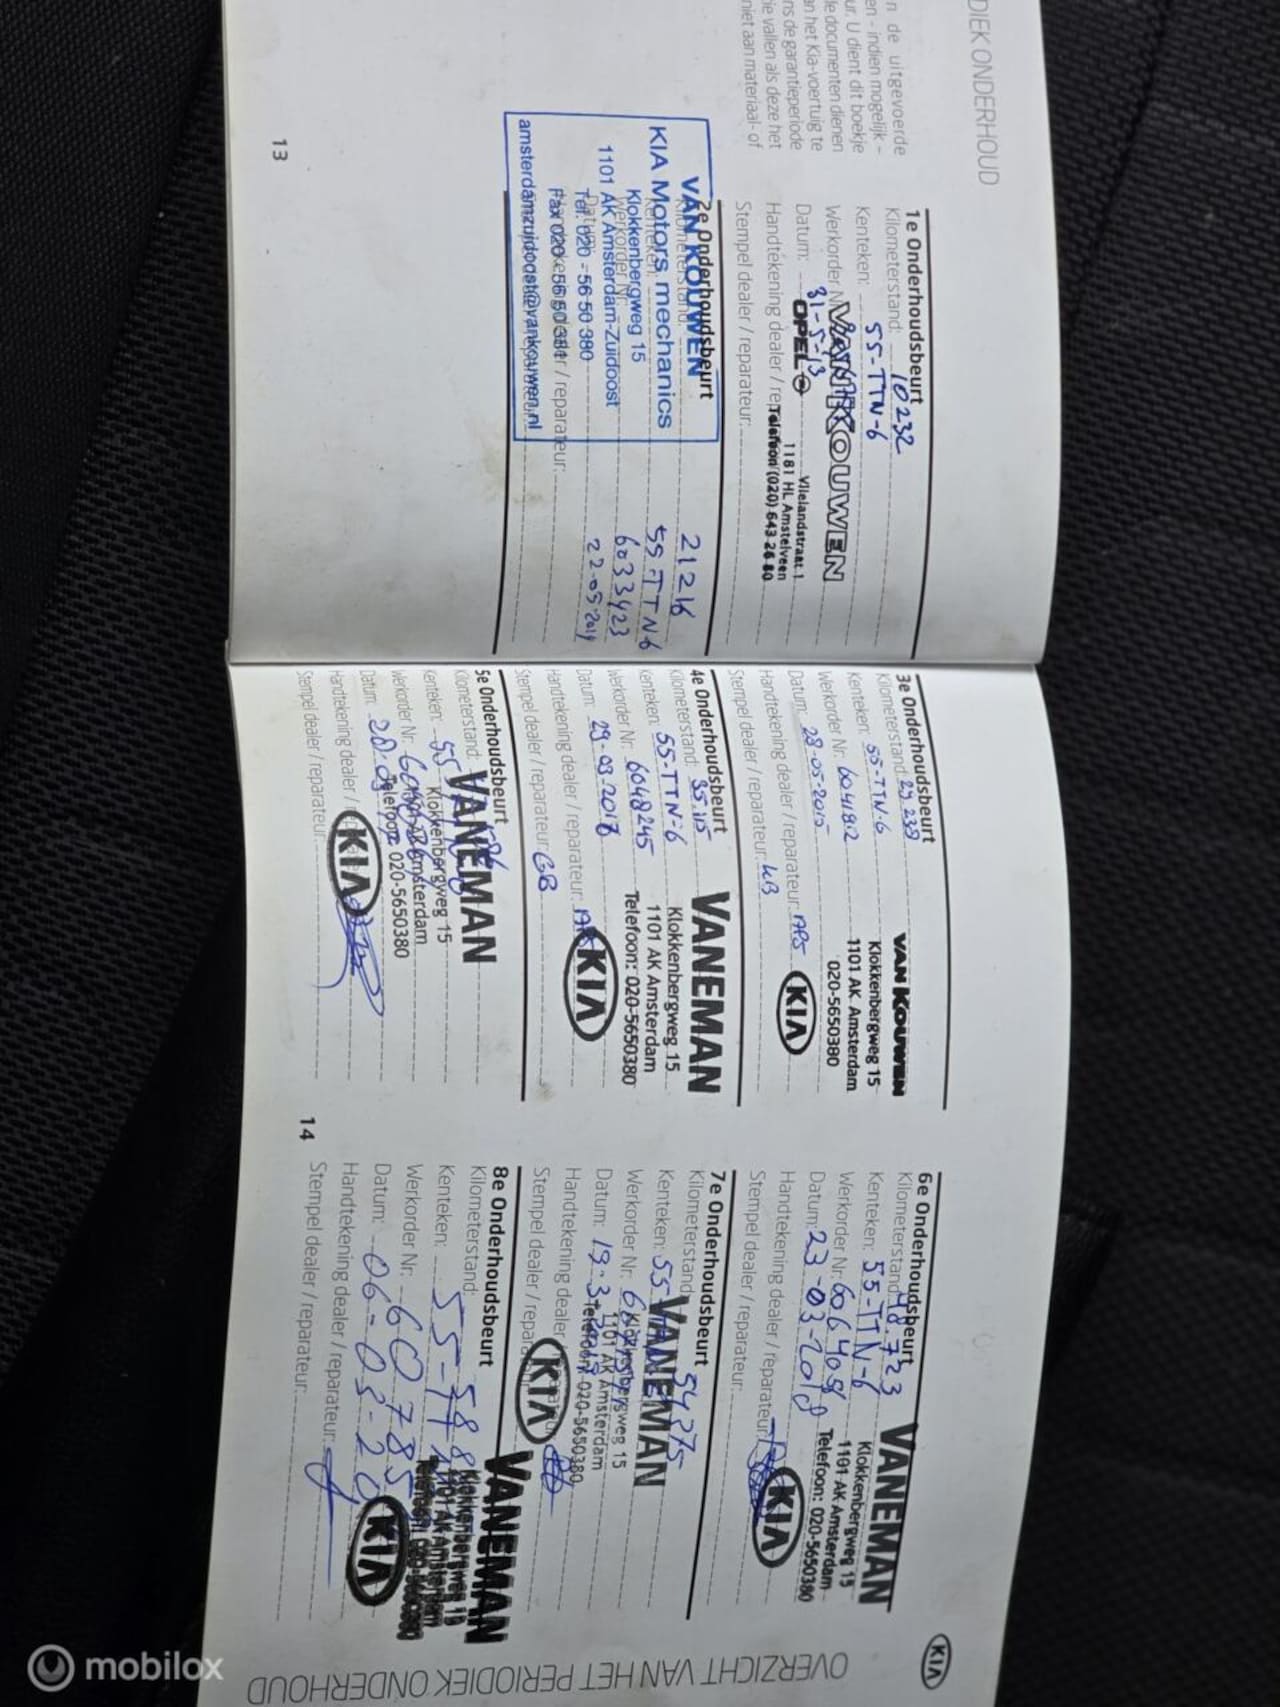 DIEK ONDERHOUD
n de uitgevoerde
en - indien mogelijk -
ur. U dient dit boekje
le documenten dienen
an het Kia-voertuig te
ns de garantieperiode
ie vallen als deze het
niet aan materiaal- of
1e Onderhoudsbeurt
Kilometerstand: 10232
Kenteken: 55-TTN-6
Werkorder N
VAN KOUWEN
Datum: 31-5-13
OPEL
Vlielandstraat 1
1181 HL Amstelveen
Telefoon (020) 643 26 80
Handtekening dealer / rep
Stempel dealer / reparateur:
2e Onderhoudsbeurt
Kilometerstand: 21216
Kenteken: 55-TTN-6
Werkorder Nr: 6033423
Datum: 22-05-2014
Handtekening dealer / reparateur:
VAN KOUWEN
KIA Motors mechanics
Klokkenbergweg 15
1101 AK Amsterdam-Zuidoost
Tel. 020 - 56 50 380
Fax 020 - 56 50 381
amsterdamzuidoost@vankouwen.nl
13
3e Onderhoudsbeurt
Kilometerstand: 29.239
Kenteken: 55-TTN-6
Werkorder Nr: 6041812
Datum: 28-05-2015
Handtekening dealer / reparateur:
Stempel dealer / reparateur:
VAN KOUWEN
Klokkenbergweg 15
1101 AK Amsterdam
020-5650380
KIA
4e Onderhoudsbeurt
Kilometerstand: 35.115
Kenteken: 55-TTN-6
Werkorder Nr: 6048245
Datum: 29-03-2016
Handtekening dealer / reparateur:
Stempel dealer / reparateur: GB
VANEMAN
Klokkenbergweg 15
1101 AK Amsterdam
Telefoon: 020-5650380
KIA
5e Onderhoudsbeurt
Kilometerstand:
Kenteken: 55
Werkorder Nr.
Datum:
Handtekening dealer /
Stempel dealer / reparateur:
VANEMAN
Klokkenbergweg 15
1101 AK Amsterdam
Telefoon: 020-5650380
KIA
14
6e Onderhoudsbeurt
Kilometerstand: 48.723
Kenteken: 55-TTN-6
Werkorder Nr: 6064098
Datum: 23-03-2018
Handtekening dealer / reparateur:
Stempel dealer / reparateur:
VANEMAN
Klokkenbergweg 15
1101 AK Amsterdam
Telefoon: 020-5650380
KIA
7e Onderhoudsbeurt
Kilometerstand: 54375
Kenteken: 55
Werkorder Nr.
Datum: 19-3-
Handtekening dealer
Stempel dealer / repara
VANEMAN
Klokkenbergweg 15
1101 AK Amsterdam
Telefoon: 020-5650380
KIA
8e Onderhoudsbeurt
Kilometerstand: 588
Kenteken: 55-TT
Werkorder Nr. 60785
Datum: 06-03-20
Handtekening dealer / reparateur:
Stempel dealer / reparateur:
VANEMAN
Klokkenbergweg 15
1101 AK Amsterdam
KIA
KIA
OVERZICHT VAN HET PERIODIEK ONDERHOUD
mobilox